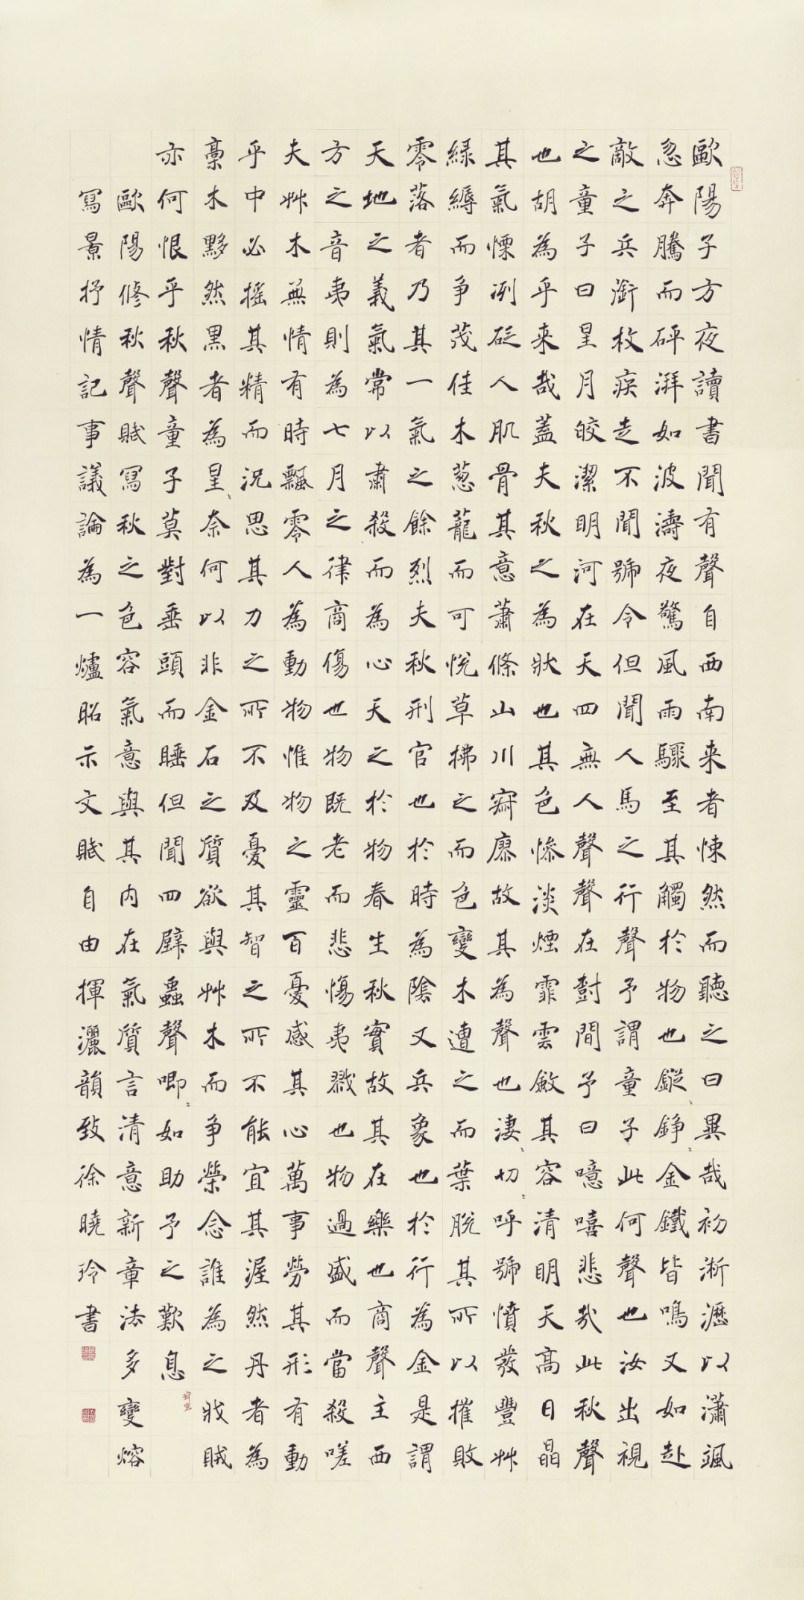 歐陽子方夜讀書聞有聲自西南来者悚然而聽之曰異哉初淅瀝以瀟颯
忽奔騰而砰湃如波濤夜驚風雨驟至其觸於物也鏦〻錚〻金鐵皆鳴又如赴
敵之兵銜枚疾走不聞號令但聞人馬之行聲予謂童子此何聲也汝出視
之童子曰星月皎潔明河在天四無人聲聲在樹間予曰噫嘻悲哉此秋聲
也胡為乎来哉蓋夫秋之為狀也其色慘淡煙霏雲斂其容清明天高日晶
其氣慄冽砭人肌骨其意蕭條山川寂廖故其為聲也凄〻切〻呼號憤發豐艸
緑縟而争茂佳木葱蘢而可悅草拂之而色變木遭之而葉脫其所以摧敗
零落者乃其一氣之餘烈夫秋刑官也於時為陰又兵象也於行為金是謂
天地之義氣常以肅殺而為心天之於物春生秋實故其在樂也商聲主西
方之音夷則為七月之律商傷也物既老而悲傷夷戮也物過盛而當殺嗟
夫艸木無情有時飄零人為動物惟物之靈百憂感其心萬事勞其形有動
乎中必摇其精而況思其力之所不及憂其智之所不能宜其渥然丹者為
槀木黟然黑者為星〻奈何以非金石之質欲與艸木而争榮念誰為之戕賊
亦何恨乎秋聲童子莫對垂頭而睡但聞四壁蟲聲唧〻如助予之歎息
歐陽修秋聲賦寫秋之色容氣意與其内在氣質言清意新章法多變熔
寫景抒情記事議論為一爐昭示文賦自由揮灑韻致徐曉玲書